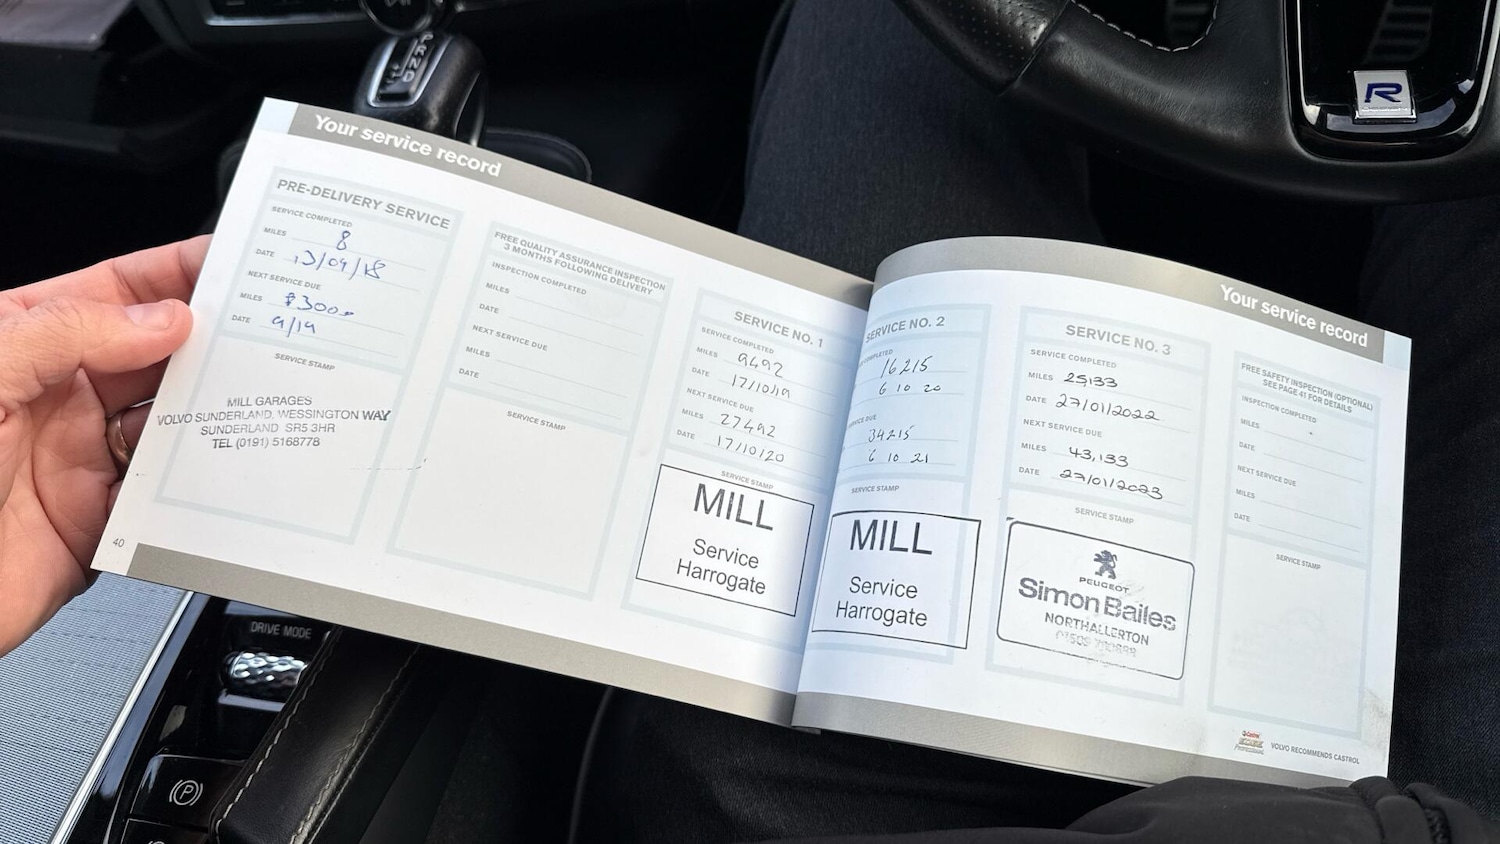 PRND
R
Your service record
PRE-DELIVERY SERVICE
SERVICE COMPLETED
MILES 8
DATE 13/09/18
NEXT SERVICE DUE
MILES
DATE 9/19
SERVICE STAMP
MILL GARAGES
VOLVO SUNDERLAND, WESSINGTON WAY
SUNDERLAND SR5 3HR
TEL (0191) 5168778
40
FREE QUALITY ASSURANCE INSPECTION
3 MONTHS FOLLOWING DELIVERY
INSPECTION COMPLETED
MILES
DATE
NEXT SERVICE DUE
MILES
DATE
SERVICE STAMP
SERVICE NO. 1
SERVICE COMPLETED
MILES 9492
DATE 17/10/19
NEXT SERVICE DUE
MILES 27492
DATE 17/10/20
SERVICE STAMP
MILL
Service
Harrogate
Your service record
SERVICE NO. 2
COMPLETED
16215
6 10 20
SERVICE DUE
34215
6 10 21
SERVICE STAMP
MILL
Service
Harrogate
SERVICE NO. 3
SERVICE COMPLETED
MILES 25,133
DATE 27/01/2022
NEXT SERVICE DUE
MILES 43,133
DATE 27/01/2023
SERVICE STAMP
PEUGEOT
Simon Bailes
NORTHALLERTON
FREE SAFETY INSPECTION (OPTIONAL)
SEE PAGE 41 FOR DETAILS
INSPECTION COMPLETED
MILES
DATE
NEXT SERVICE DUE
MILES
DATE
SERVICE STAMP
Castrol
EDGE
Professional
VOLVO RECOMMENDS CASTROL
DRIVE MODE
P